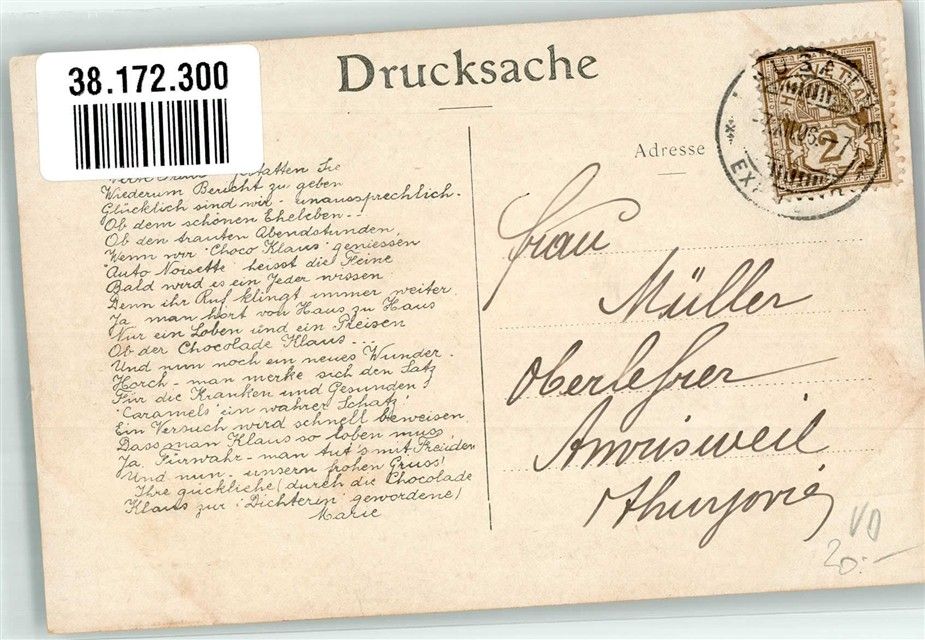 38.172.300
Drucksache
Adresse
2
gestatten Sie
Wiederum Bericht zu geben
Glücklich sind wir - unaussprechlich -
Ob dem schönen Eheleben - -
Ob den trauten Abendstunden,
Wenn wir "Choco Klaus" geniessen
"Auto Noisette" heisst die Feine
Bald wird es ein Jeder wissen
Denn ihr Ruf klingt immer weiter.
Ja man hört von Haus zu Haus
Nur ein Loben und ein Preisen
Ob der Chocolade Klaus - ...
Und nun noch ein neues Wunder -
Horch - man merke sich den Satz
Für die Kranken und Gesunden!
"Caramels" ein wahrer Schatz!
Ein Versuch wird schnell beweisen
Dass man Klaus so loben muss,
Ja, Fürwahr - man tut's mit Freuden
Und nun - unsern frohen Gruss!
Ihre glückliche (durch die Chocolade
Klaus zur "Dichterin" gewordene)
Marie
Frau
Müller
Oberlehrer
Amrisweil
Thurgovie
VD
20.-